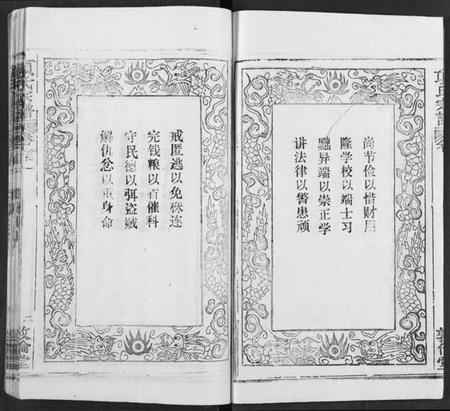 尚节俭以惜财用
隆学校以端士习
黜异端以崇正学
讲法律以警愚顽
戒匿逃以免株连
完钱粮以省催科
守民德以弭盗贼
解仇忿以重身命
敦倫堂
敦倫堂